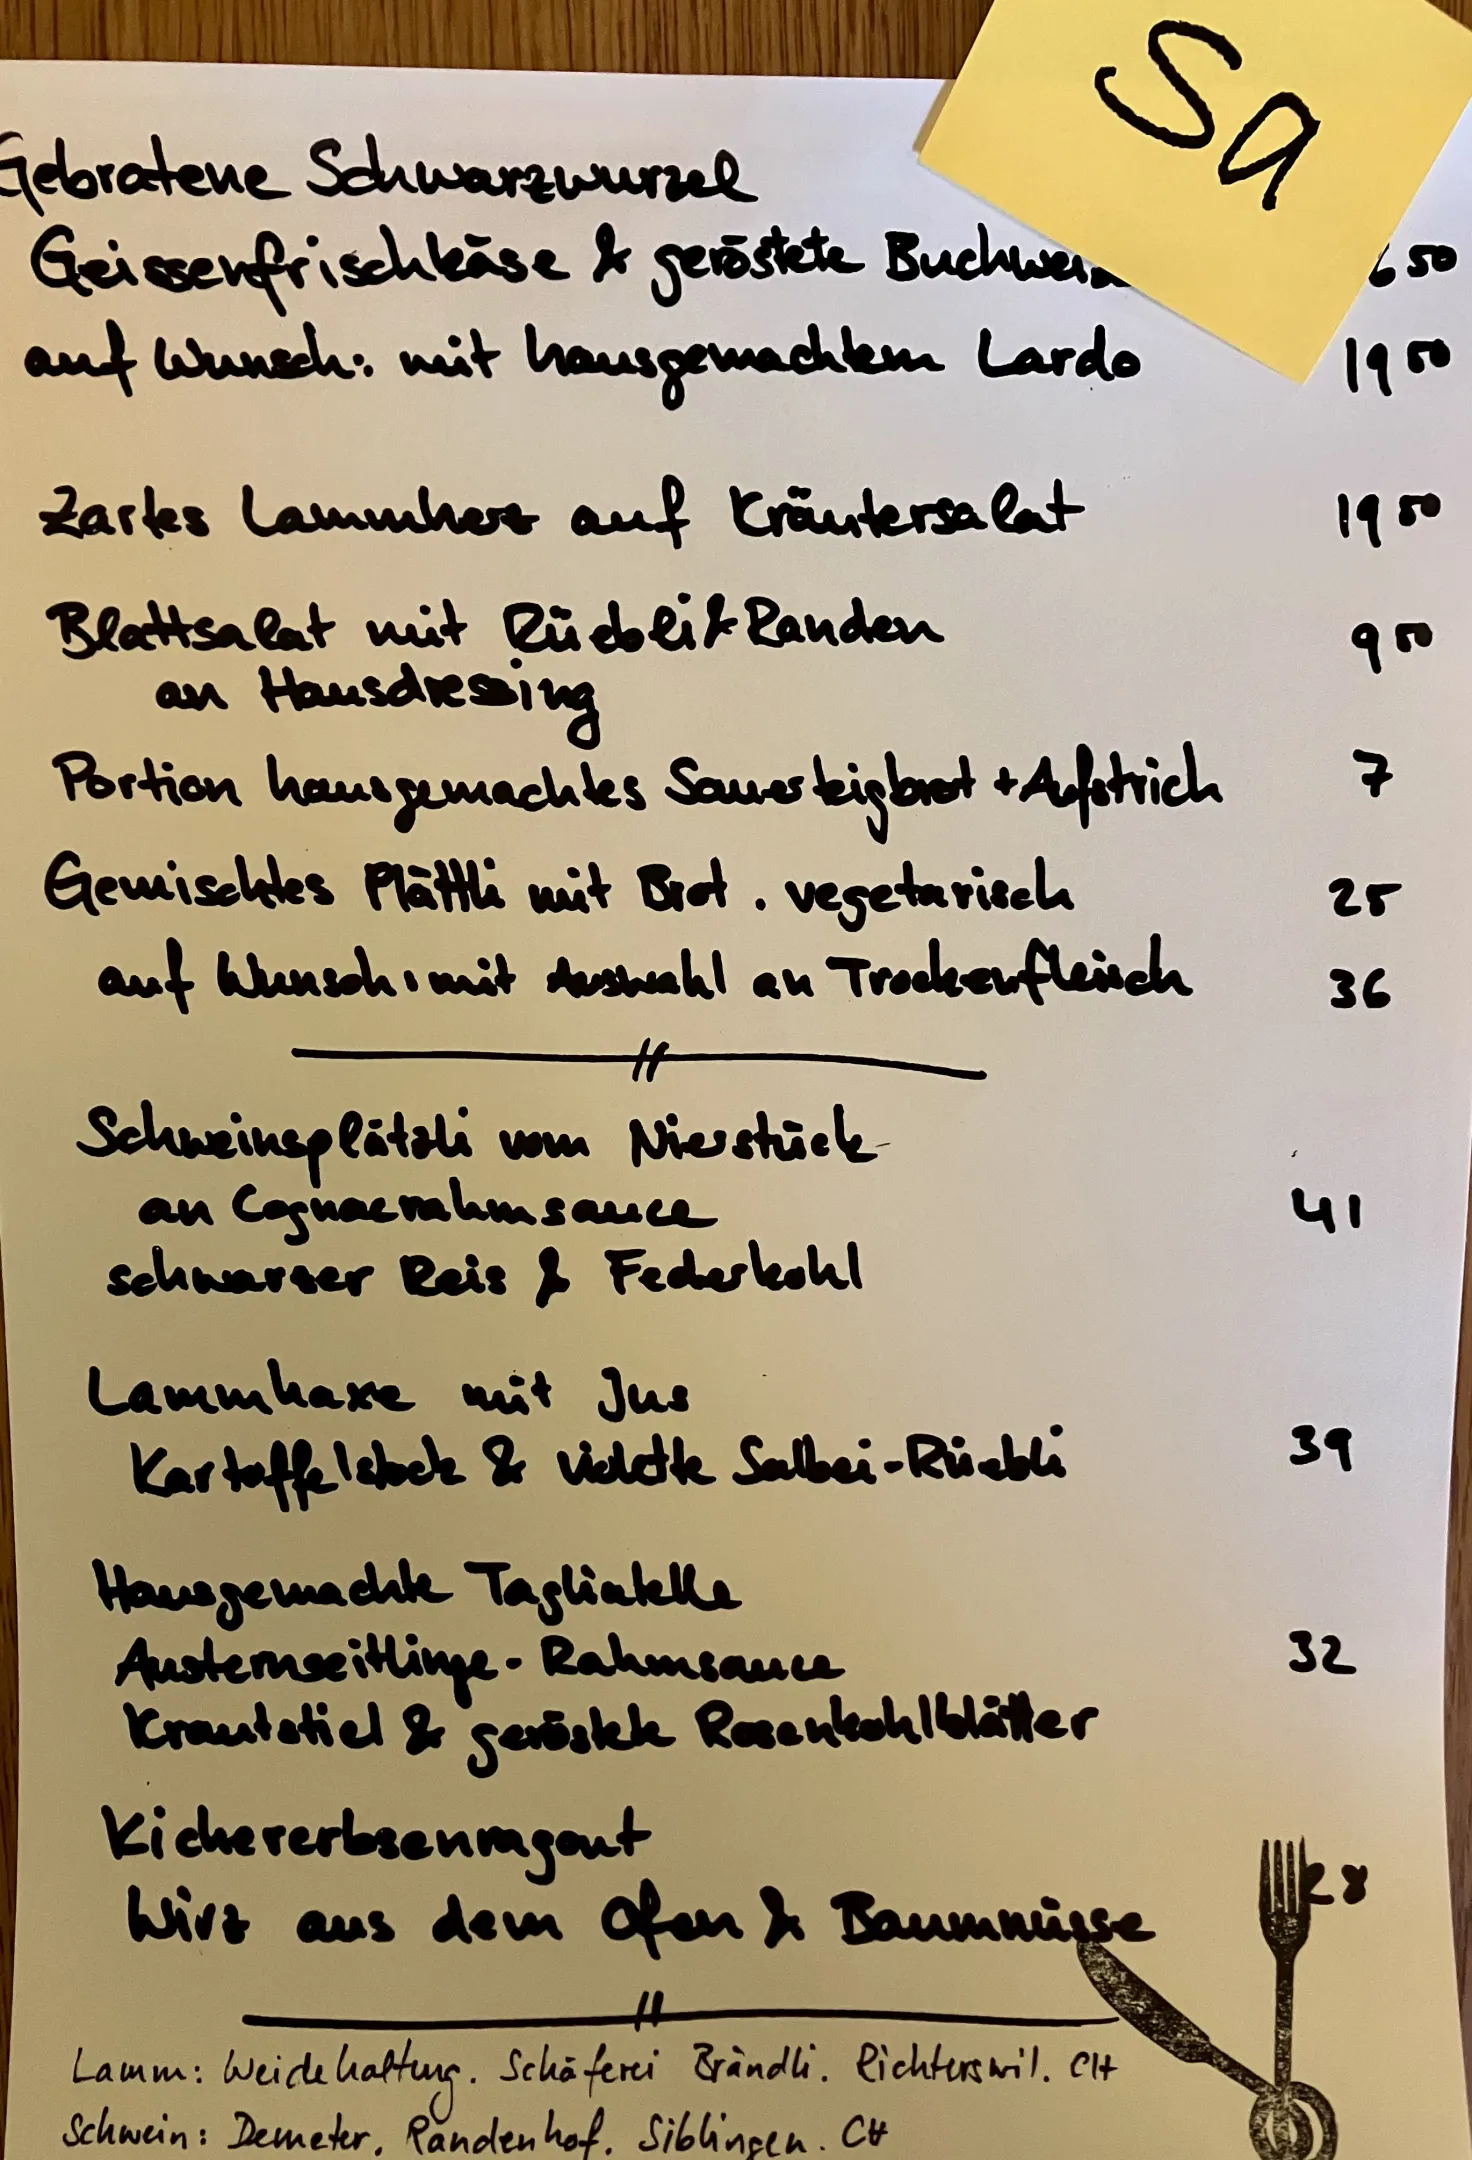 Sa
Gebratene Schwarzwurzel
Geissenfrischkäse & geröstete 50
auf Wunsch: mit hausgemachtem Lardo 19 50
Zartes Lammherz auf Kräutersalat 19 50
Blattsalat mit Rüebli & Randen 9 50
an Hausdressing
Portion hausgemachtes Sauerteigbrot + Aufstrich 7
Gemischtes Plättli mit Brot. vegetarisch 25
auf Wunsch: mit Auswahl an Trockenfleisch 36
Schweinsplätzli vom Nierstück
an Cognacrahmsauce 41
schwarzer Reis & Federkohl
Lammhaxe mit Jus
Kartoffelstock & violette Salbei-Rüebli 39
Hausgemachte Tagliatelle
Austernseitlinge-Rahmsauce 32
Krautstiel & geröstete Rosenkohlblätter
Kichererbsenragout
Wirz aus dem Ofen & Baumnüsse 28
Lamm: Weidehaltung. Schäferei Brändli. Richterswil. CH
Schwein: Demeter. Randenhof. Siblingen. CH